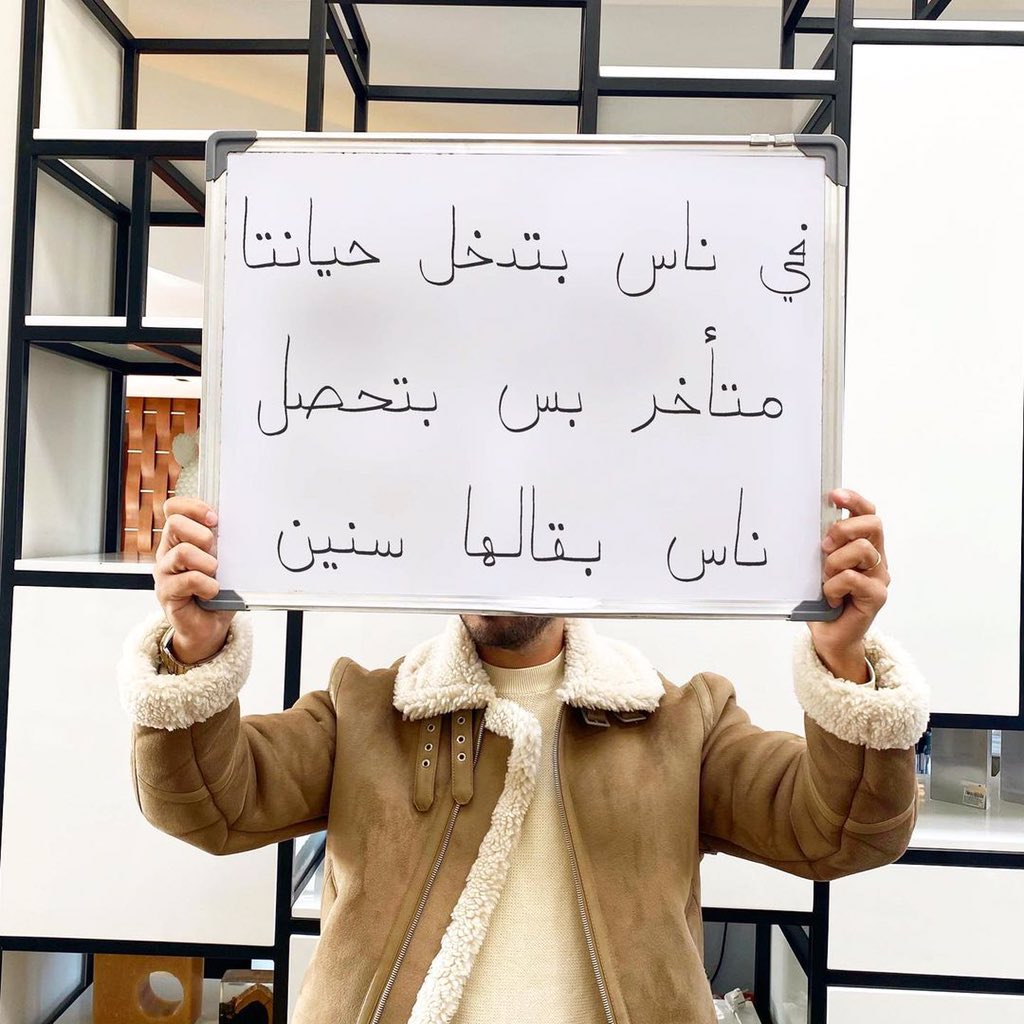 في ناس بتدخل حياتنا
متأخر بس بتحصل
ناس بقالها سنين